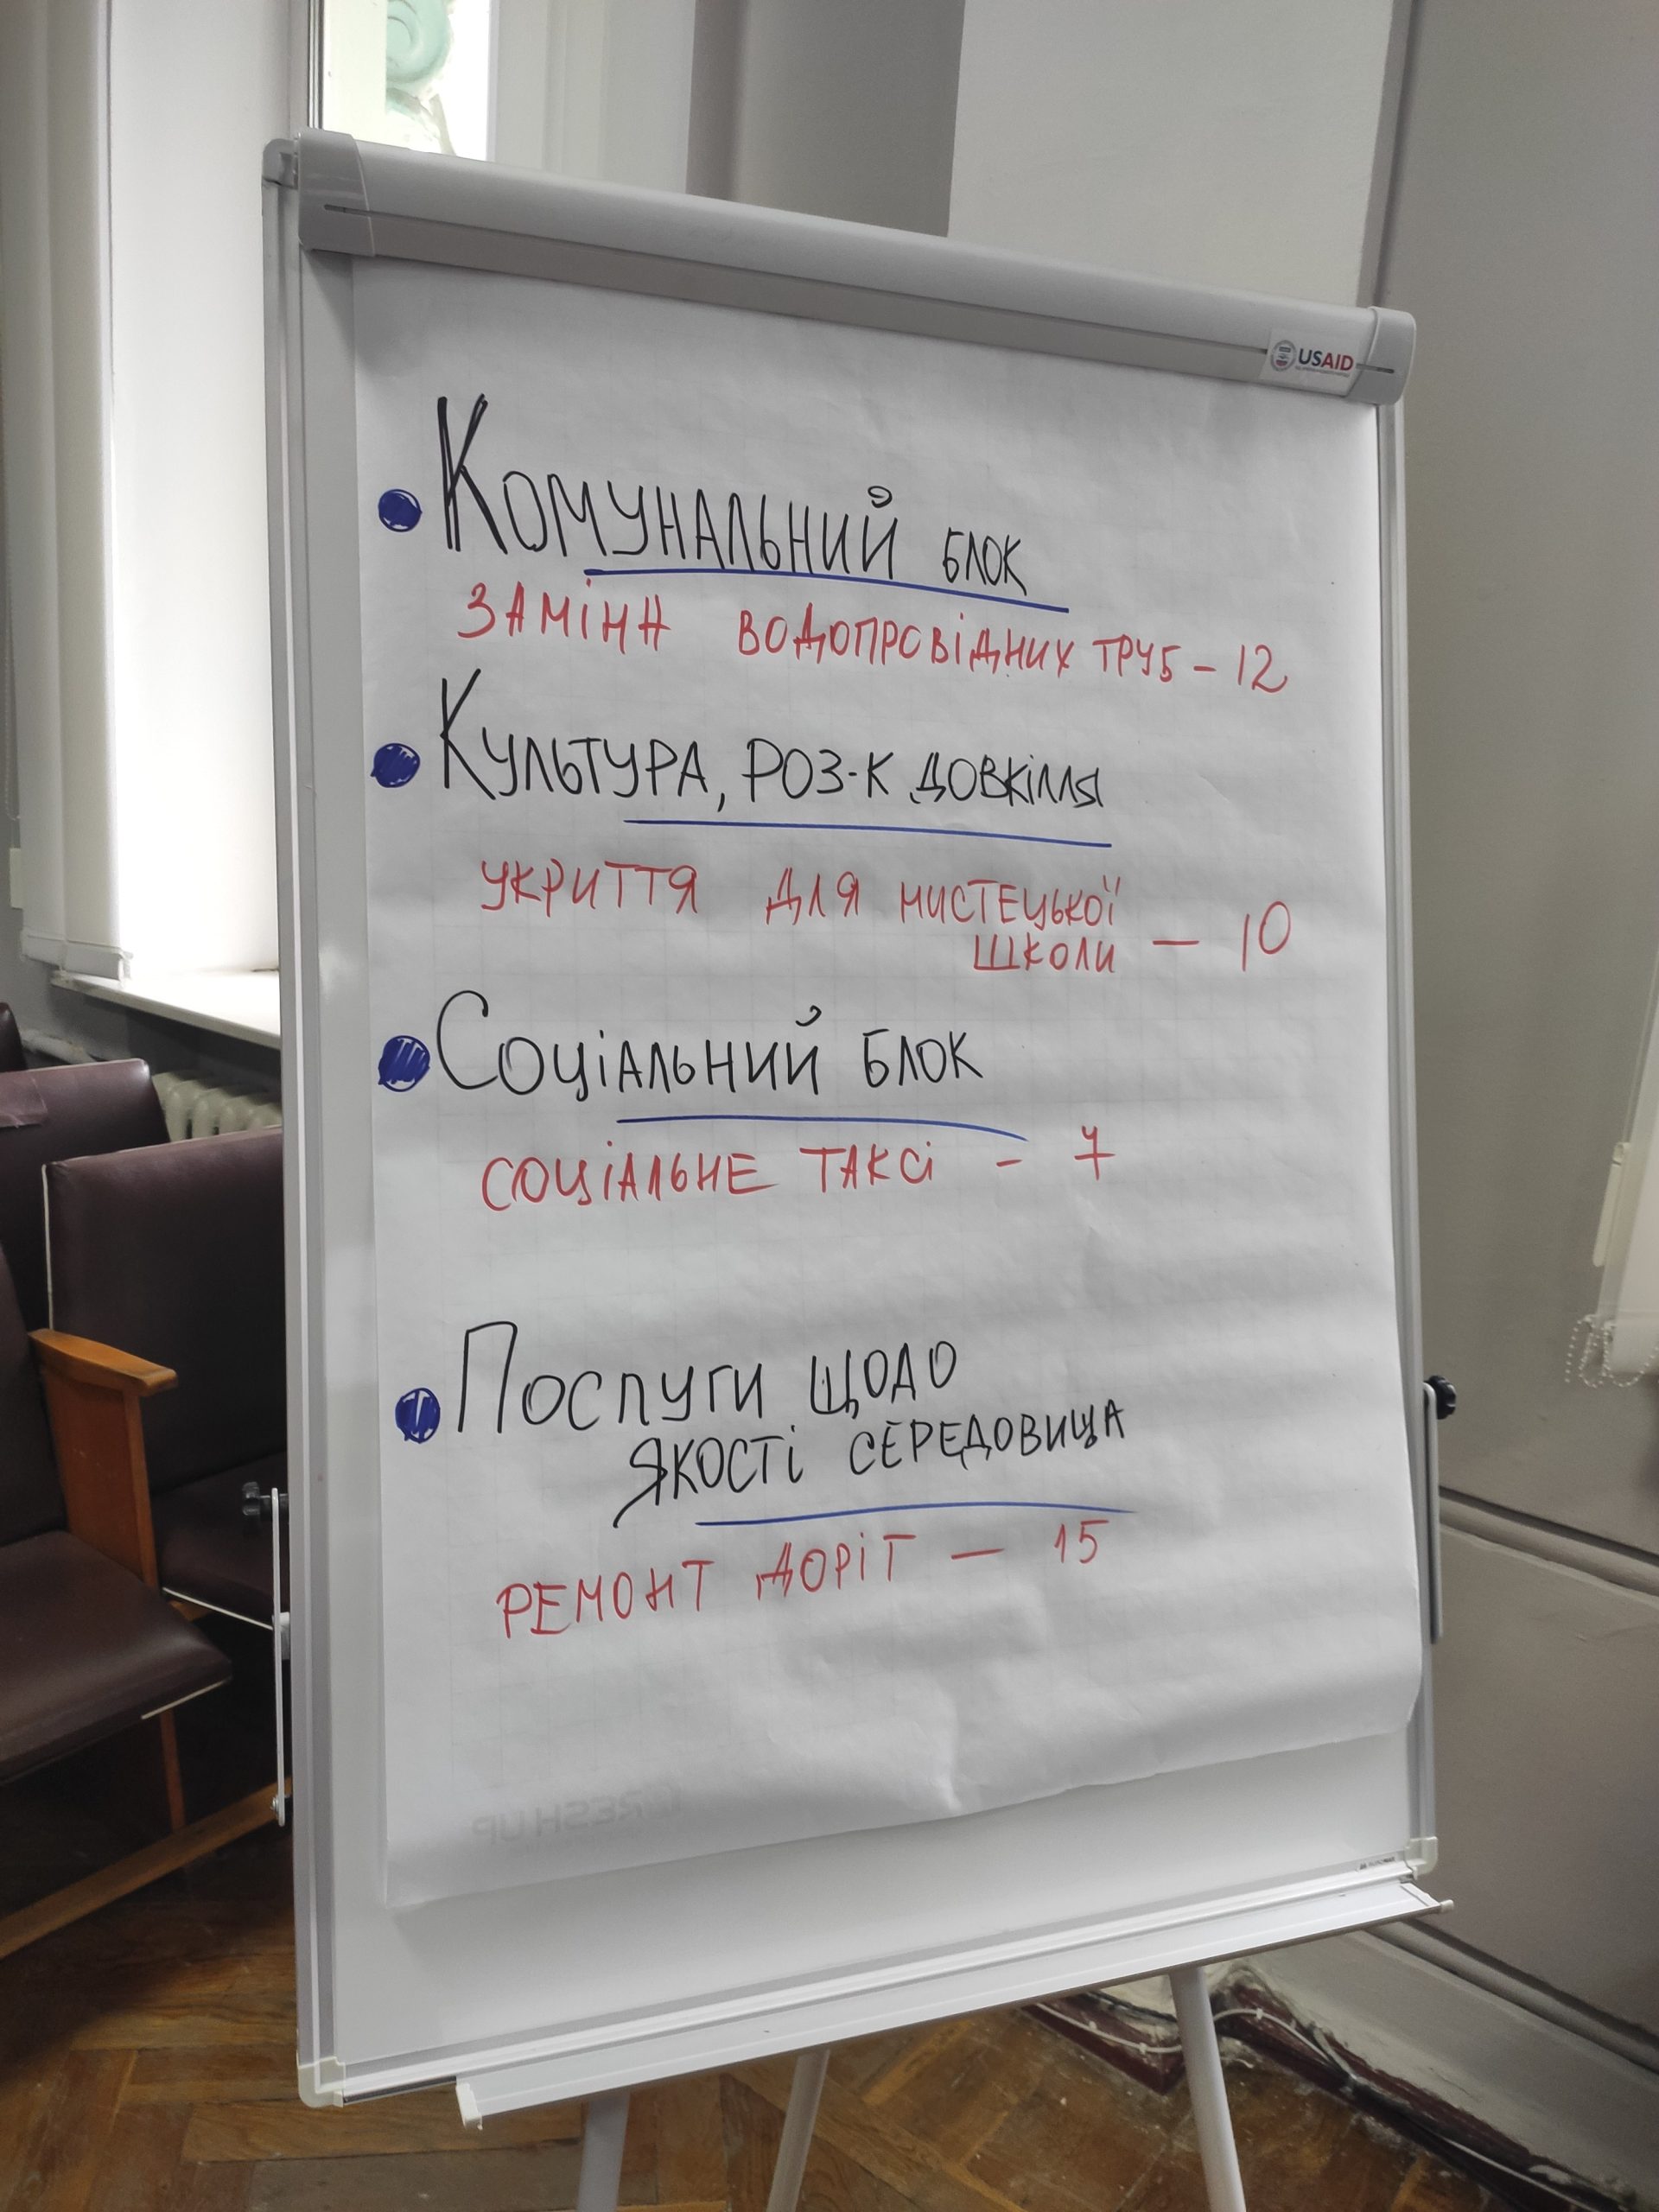 USAID
Комунальний блок
заміна водопровідних труб - 12
Культура, роз-к довкілля
укриття для мистецької
школи - 10
Соціальний блок
соціальне таксі - 7
Послуги щодо
якості середовища
ремонт доріт - 15
FRESH UP